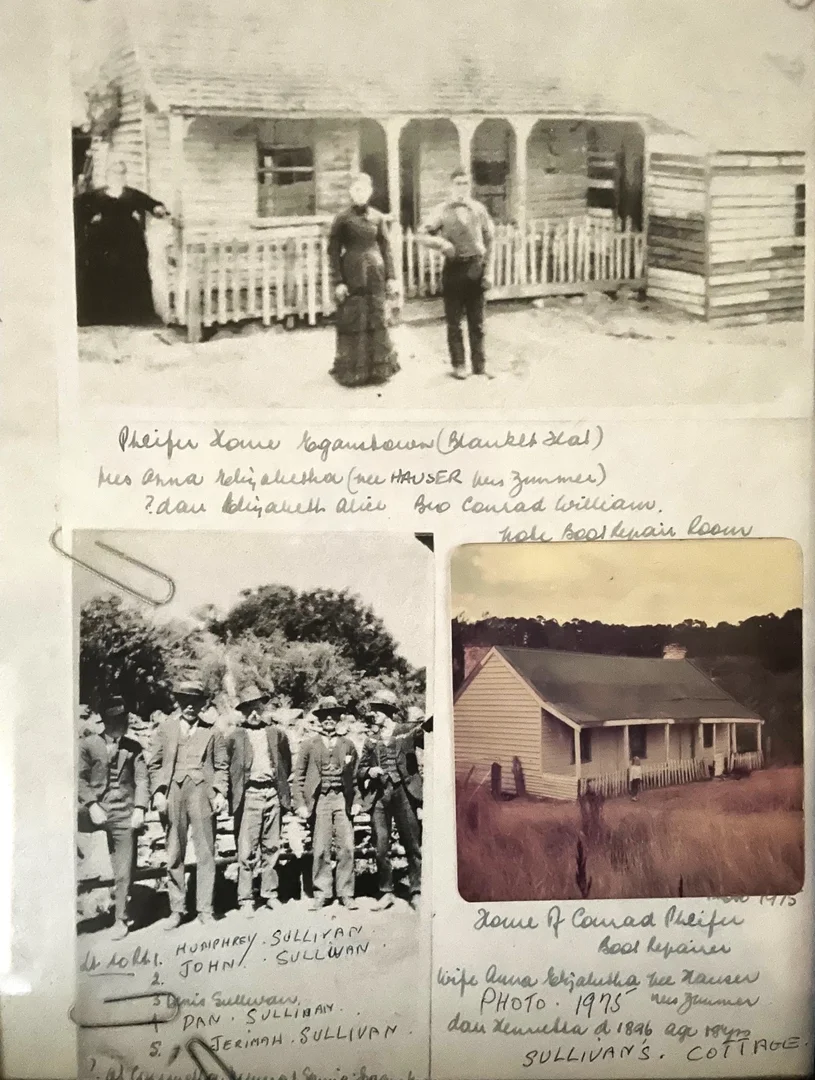 Pheifer Home Eganstown (Blanket Flat)
Mrs Anna Elizabetha (nee HAUSER nes Zummer)
? dau Elizabeth Alice Bro Conrad William.
note Boot Repair Room
Lt to Rt 1. HUMPHREY. SULLIVAN.
2. JOHN. SULLIVAN
3 Denis Sullivan.
4 DAN. SULLIVAN.
5. JERIMAH. SULLIVAN.
1975
Home Of Conrad Pheifer
Boot Repairer
Wife Anna Elizabetha nee Hauser
PHOTO. 1975 nes Zummer
dau Henrietta d 1896 age 18yrs
SULLIVAN'S. COTTAGE.